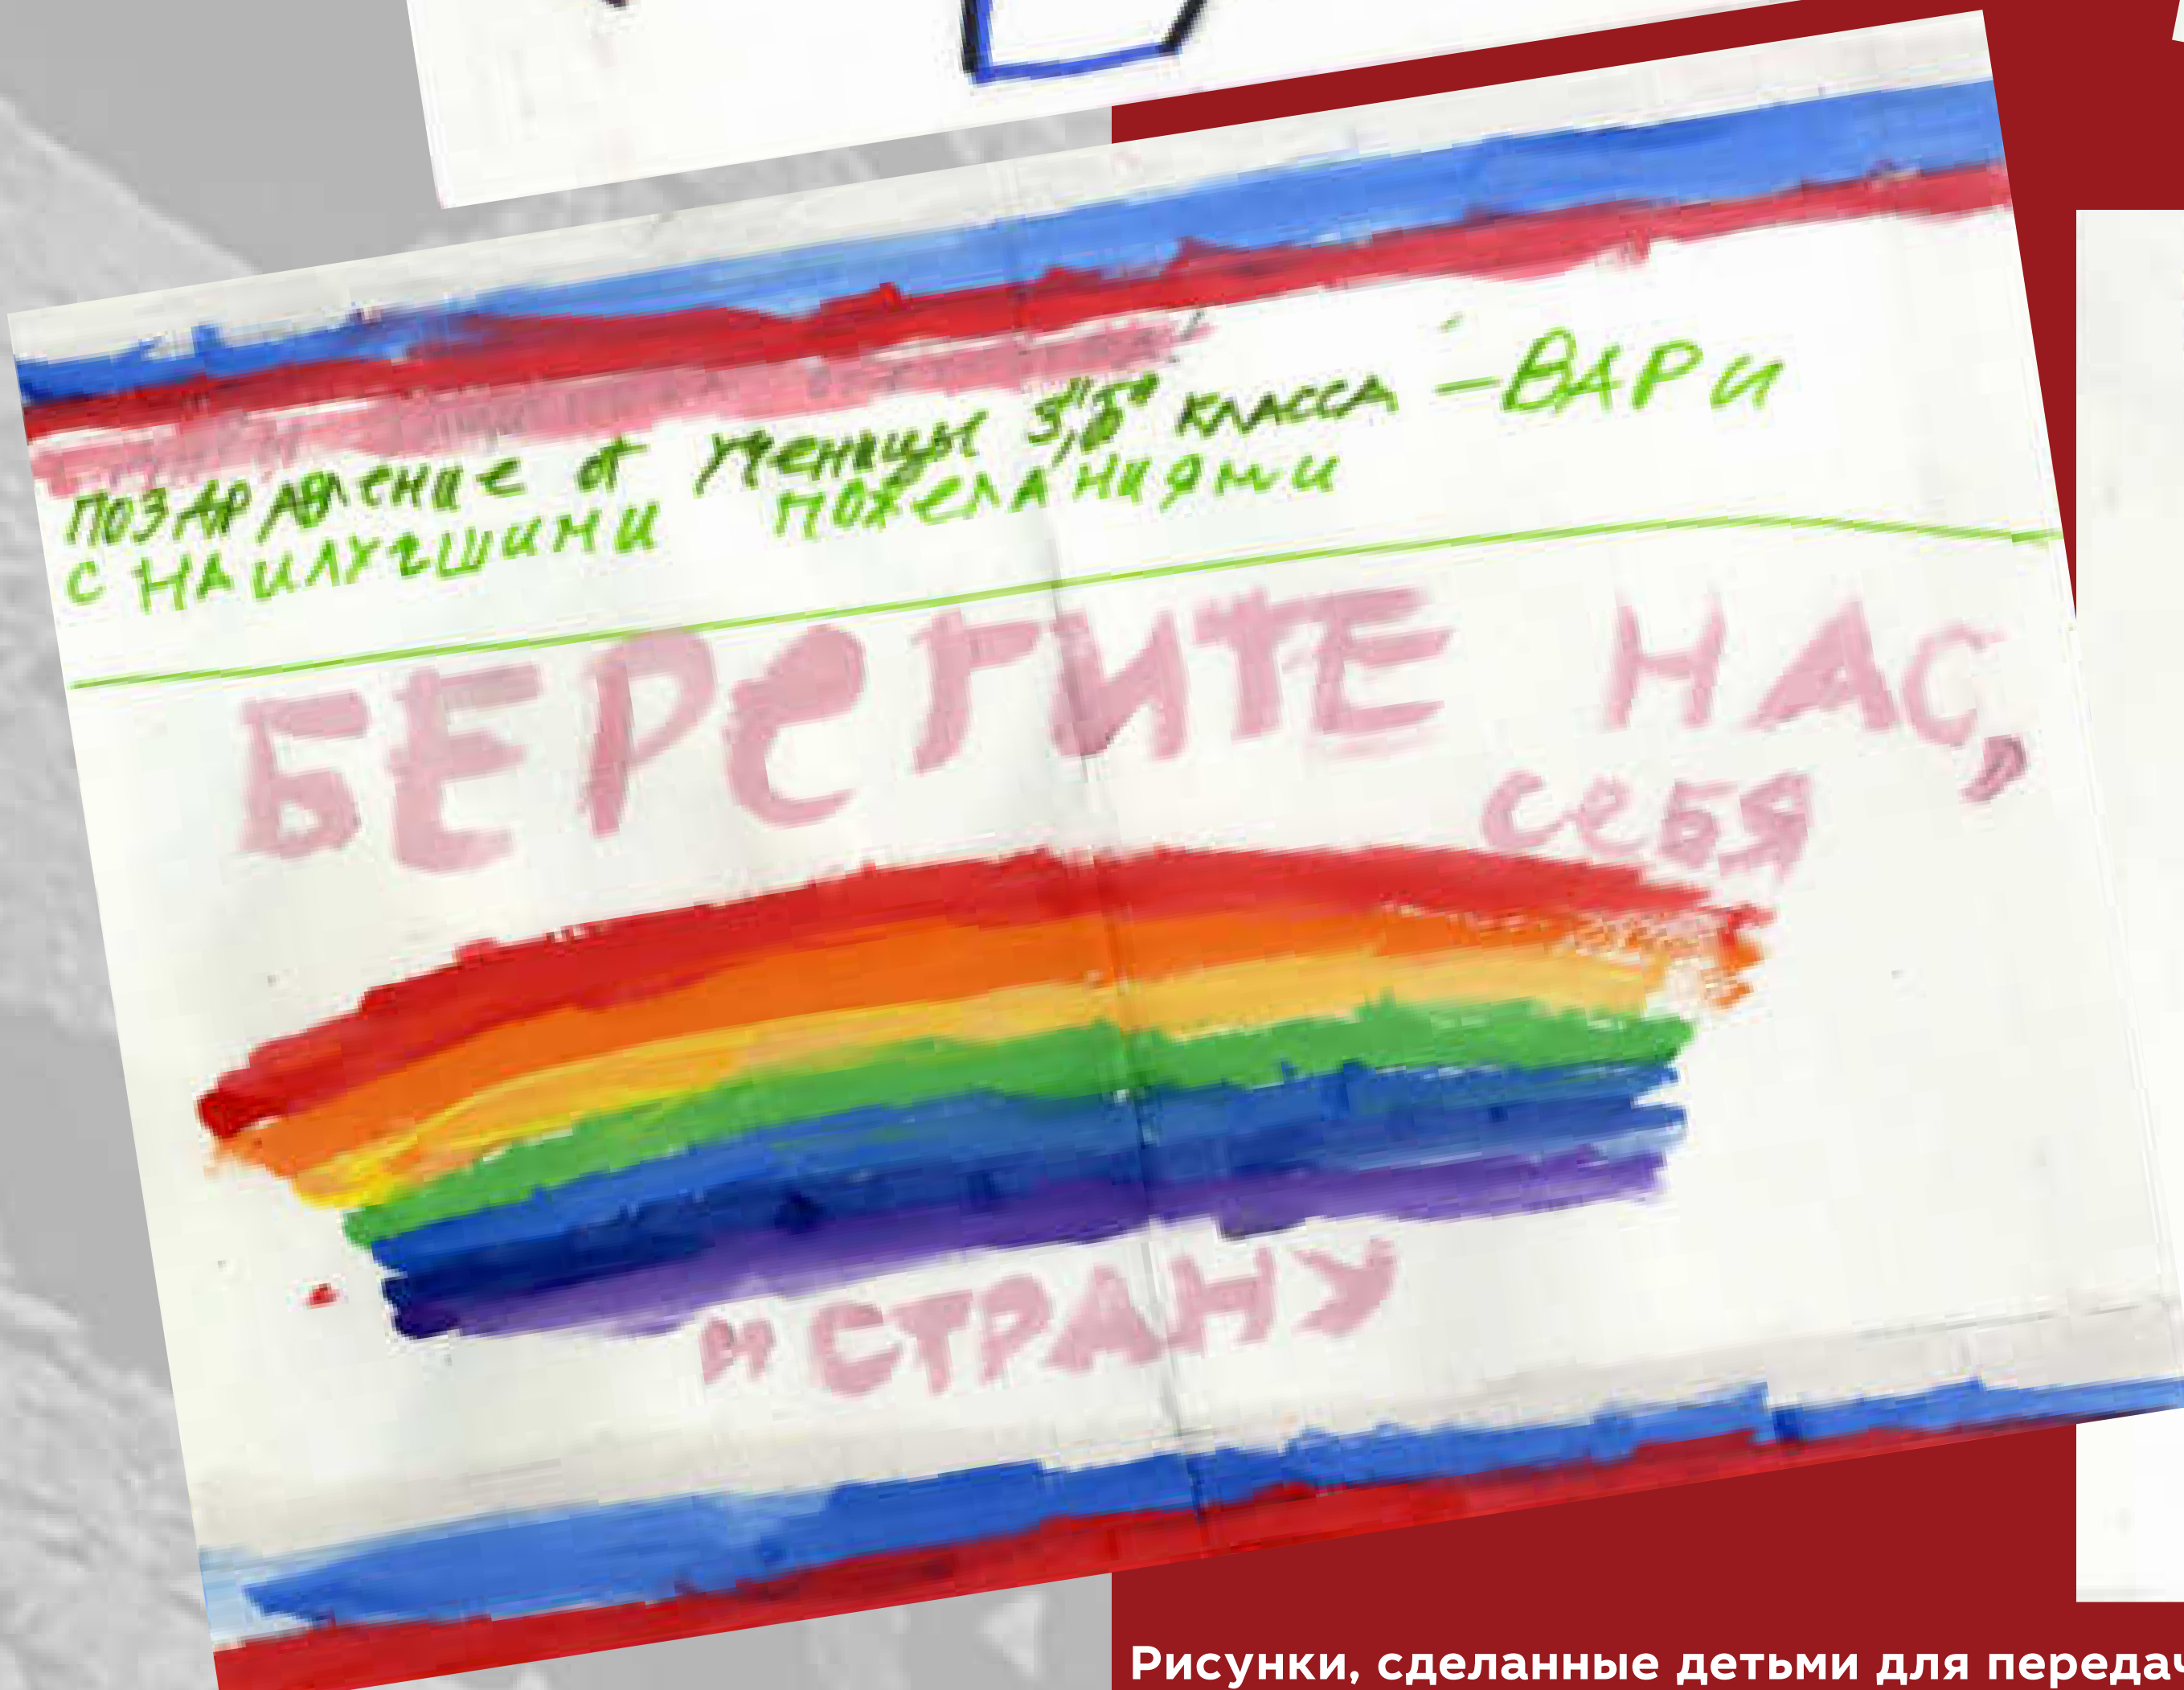 ПОЗДРАВЛЕНИЕ от Ученицы 3 "Б" КЛАССА – ВАРИ
С НАИЛУЧШИМИ ПОЖЕЛАНИЯМИ
БЕРЕГИТЕ НАС,
СЕБЯ
И СТРАНУ
Рисунки, сделанные детьми для передач